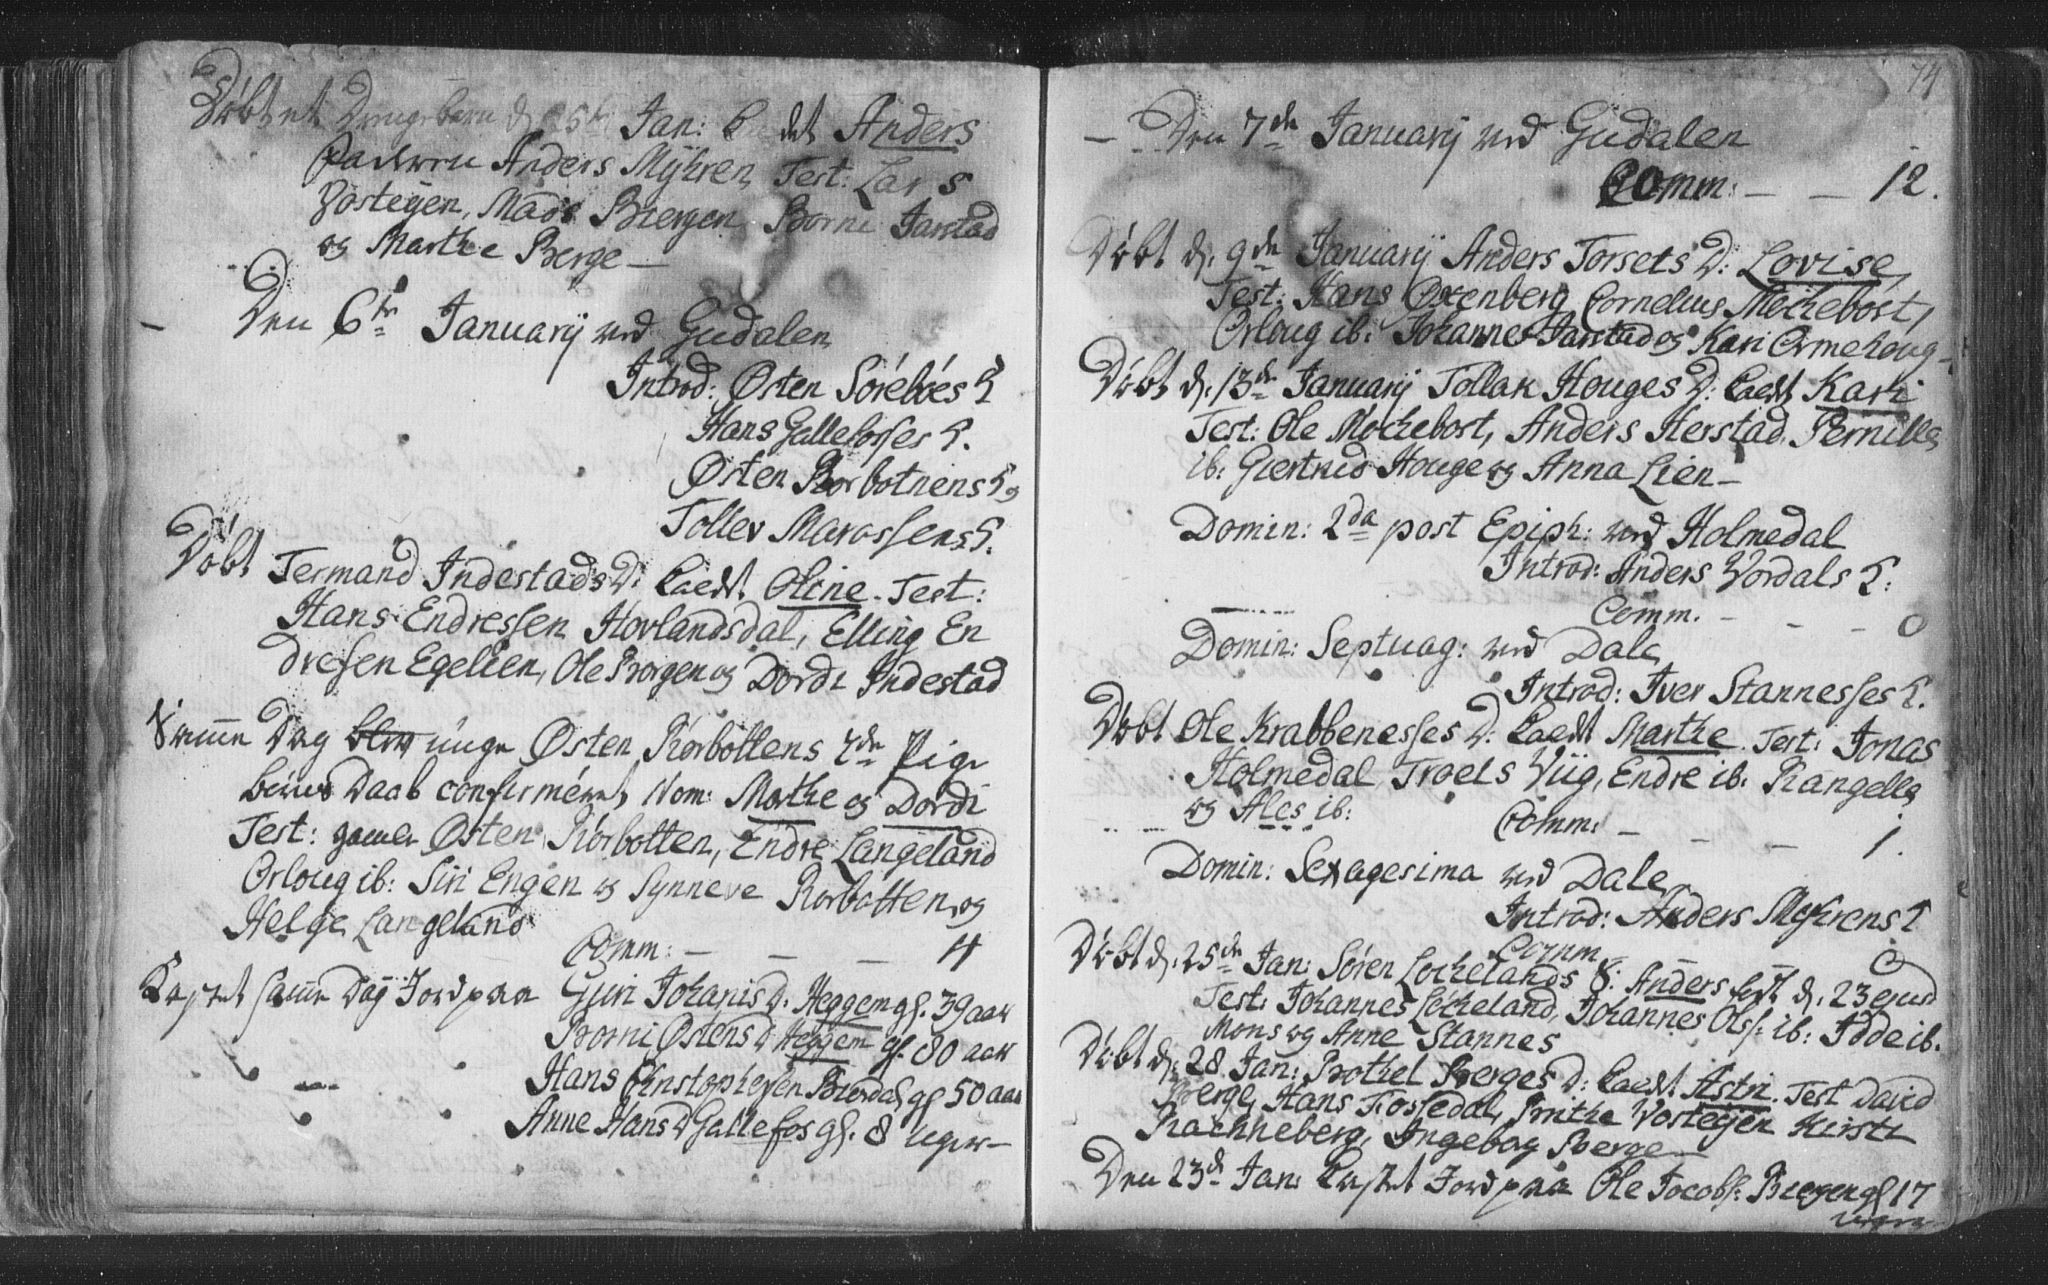 Døbt et Drengebarn d. 5te Jan: kaldet Anders
Faderen Anders Myhren, Test: Lars
Vosteyen, Mads Biergen Borni Jarstad
og Marthe Berge
Den 6te Januarij ved Gudalen
Introd: Østen Sörebøes H
Hans Gallefosses H.
Østen Rorbotnens H og
Tollev Marassens H.
Døbt Termand Indestads D: kaldt Oline. Test:
Hans Endressen Hovlandsdal, Elling En
dresen Egelien, Ole Borgen og Dordi Indestad
Samme Dag blev unge Østen Rorbottens 2de Pige
børns Daab confirmeret, Nom: Marthe og Dordi
Test: gamle Østen Rorbotten, Endre Langeland
Orloug ib: Siri Engen og Synneve Rorbotten, og
Helge Langeland
Comm: — — — 4
Kastet samme Dag Jord paa Guri Johanis D. Heggem gl. 39 aar
Borni Østens D Heggem gl. 80 aar
Hans Christophersen Bierdal gl 50 aar
Anne Hans D Gallefos gl. 8 uger —
74
— Den 7de Januarij ved Gudalen
Comm: — — 12.
Døbt d. 9de Januarij Anders Torsets D: Lovise,
Test: Hans Oxenberg, Cornelius Mochebost,
Orloug ib: Johannes Jarstad og Kari Ormehoug —
Døbt d. 13de Januarij Tollak Houges D: kaldt Kari
Test: Ole Mochebost, Anders Herstad, Pernille
ib: Giertrud Houge og Anna Lien —
Domin: 2da post Epiph: ved Holmedal
Introd: Anders Vordals H:
Comm. — — — 0
Domin: Septuag: ved Dale
Introd: Iver Stannesses H.
Døbt Ole Krabbenesses D: kaldt Marthe. Test: Jonas
Holmedal, Troels Viig, Endre ib: Rangelle
og Ales ib:
Comm: — — — 1.
Domin: Sexagesima ved Dale
Introd: Anders Myhrens H
Comm. — — 0
Døbt d. 25de Jan: Søren Lochelands S: Anders født d. 23 ejusd
Test: Johannes Locheland, Johannes Ols: ib: Idde ib.
Mons og Anne Stannes
Døbt d. 28. Jan: Bothel Berges D: kaldt Astri. Test David
Berge, Hans Fossedal, Brithe Vosteyen Kirsti
Rachneberg, Ingebor Berge —
Den 23d Jan: kastet Jord paa Ole Jacobs: Biergen gl 17
uger